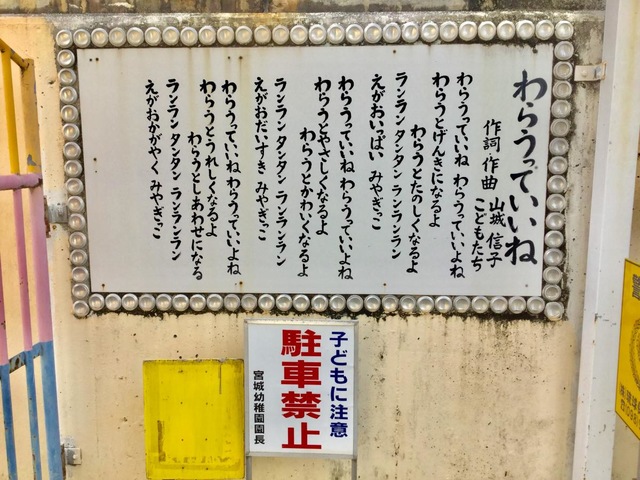 わらうっていいね
作詞 作曲 山城 信子
こどもたち
わらうっていいね わらうっていいよね
わらうとげんきになるよ
わらうとたのしくなるよ
ランラン タンタン ランランラン
えがおいっぱい みやぎっこ
わらうっていいね わらうっていいよね
わらうとやさしくなるよ
わらうとかわいくなるよ
ランランタンタン ランランラン
えがおだいすき みやぎっこ
わらうっていいね わらうっていいよね
わらうとうれしくなるよ
わらうとしあわせになる
ランラン タンタン ランランラン
えがおかがやく みやぎっこ
子どもに注意
駐車禁止
宮城幼稚園園長